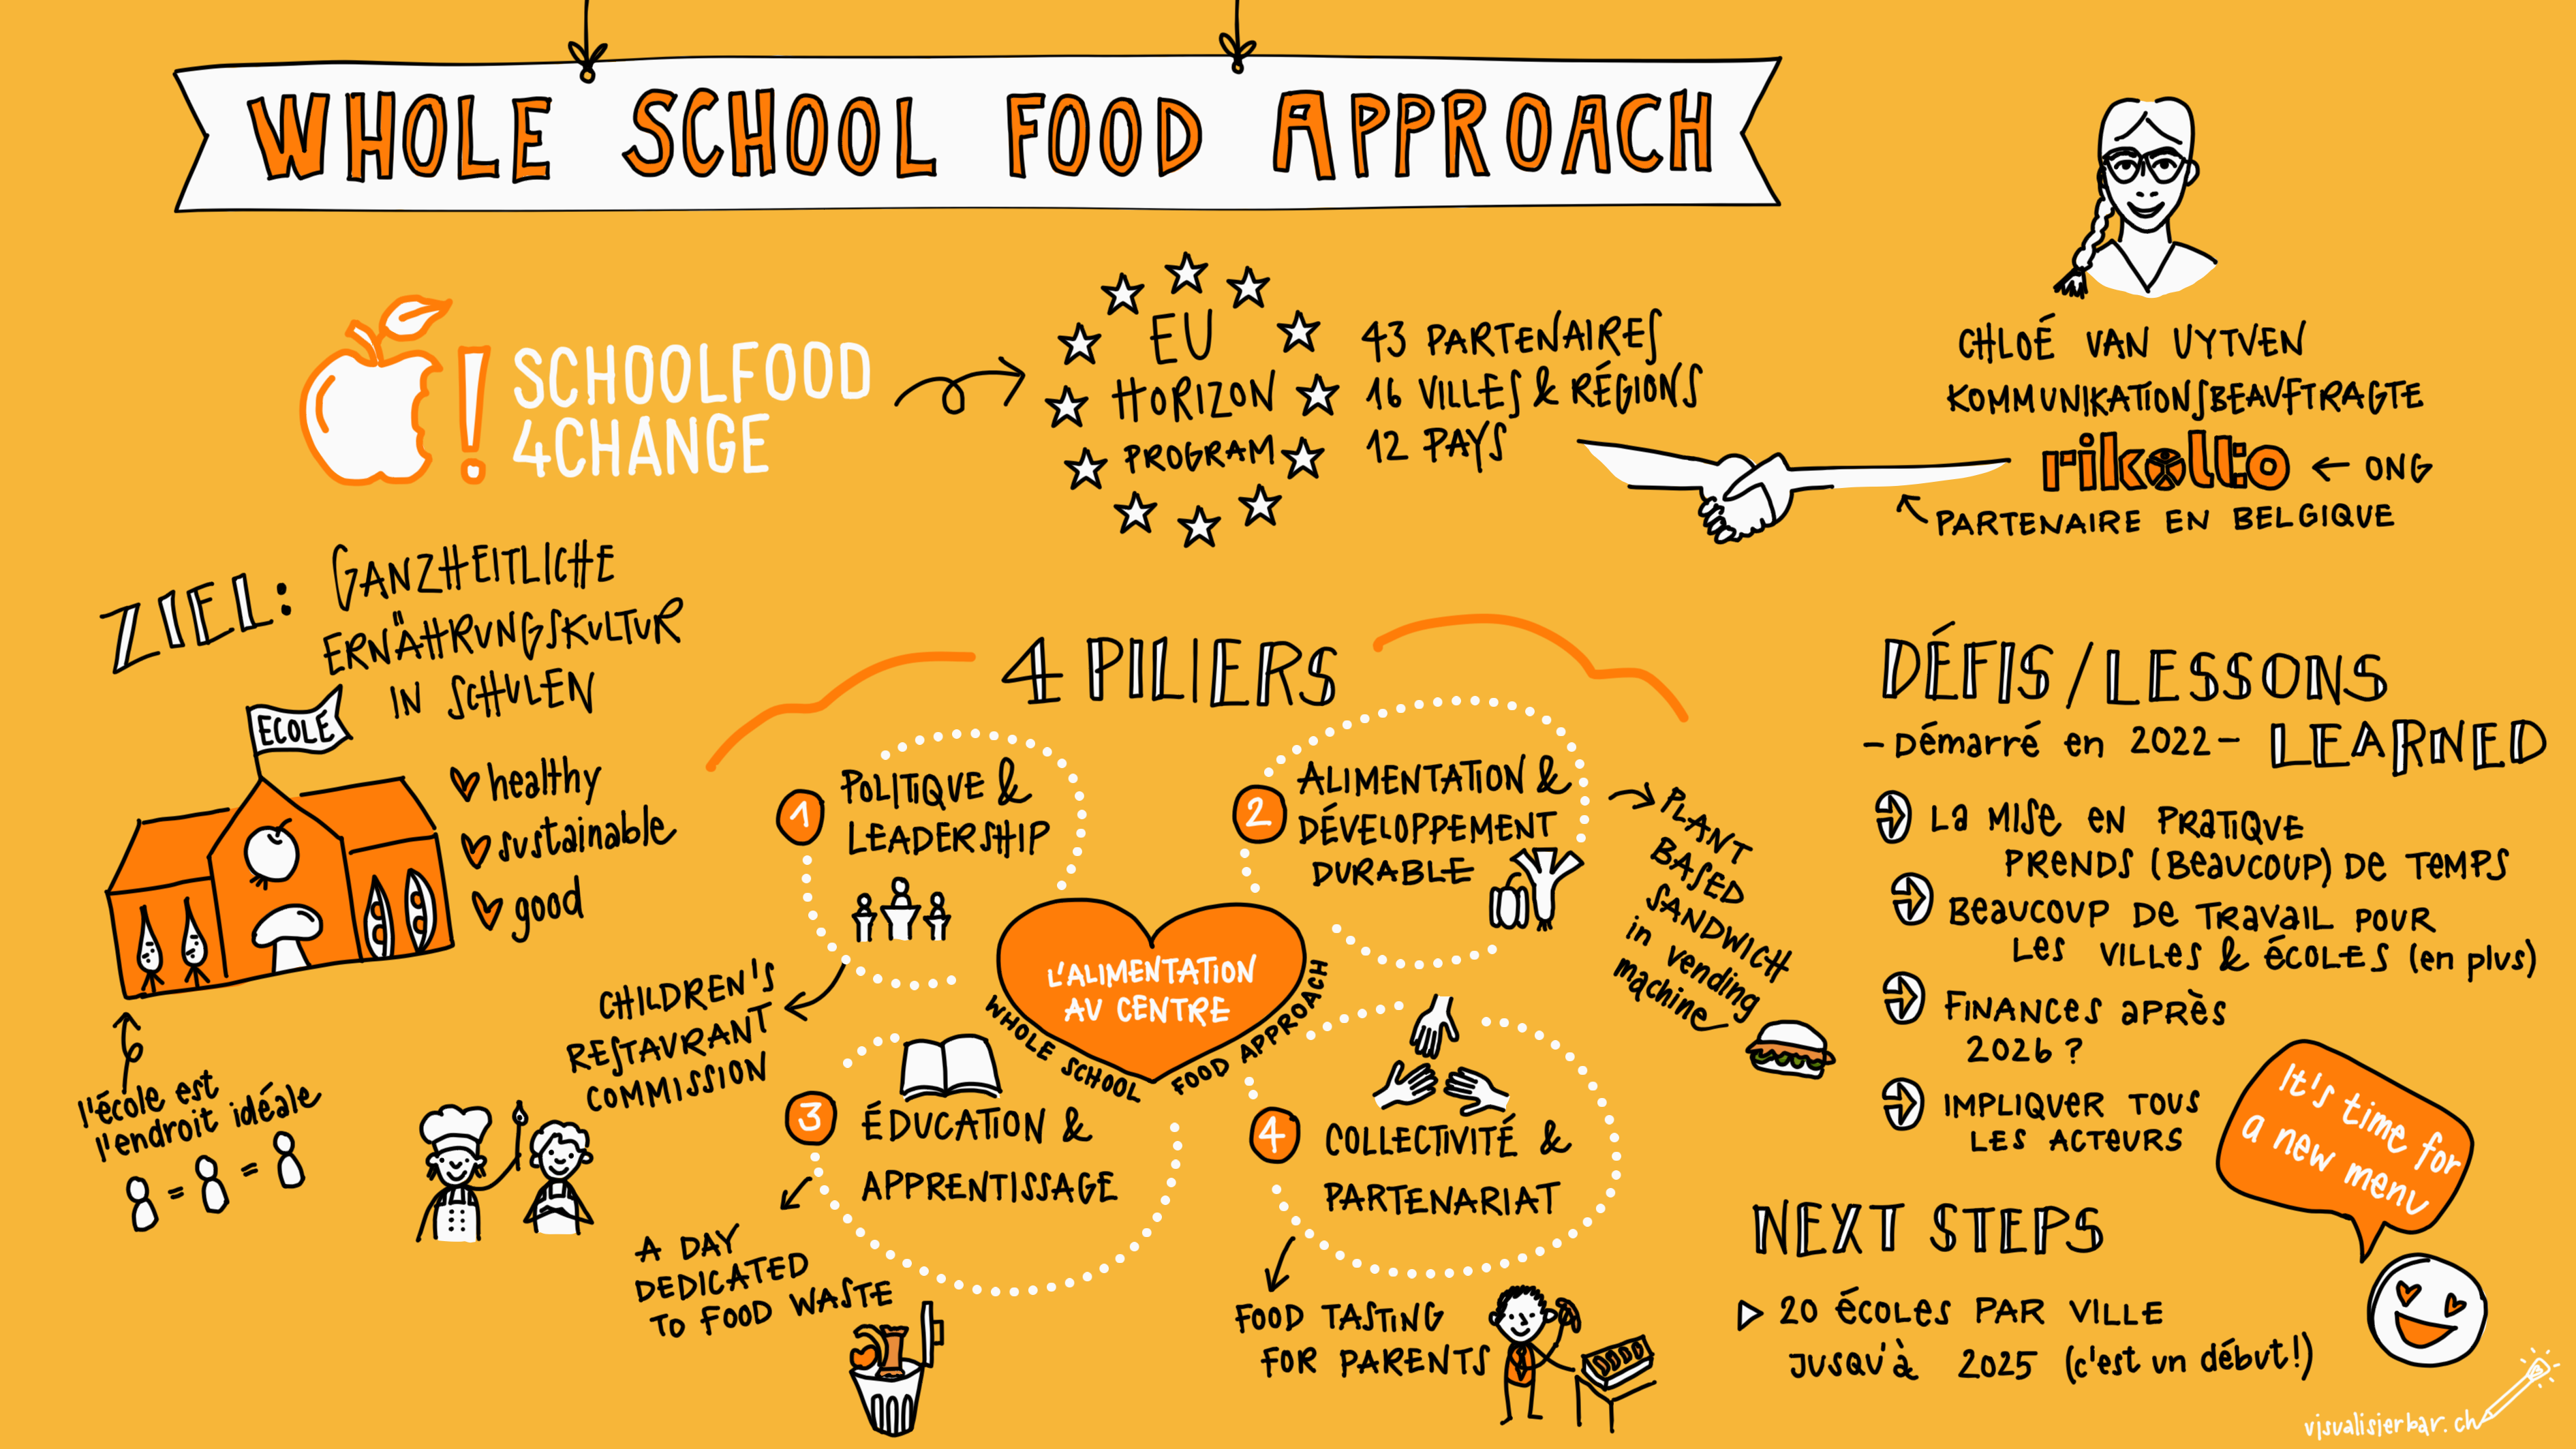 WHOLE SCHOOL FOOD APPROACH
! SCHOOLFOOD
4CHANGE
EU
HORIZON
PROGRAM
43 PARTENAIRES
16 VILLES & RÉGIONS
12 PAYS
CHLOÉ VAN UYTVEN
KOMMUNIKATIONSBEAUFTRAGTE
rikolto ← ONG
PARTENAIRE EN BELGIQUE
ZIEL: GANZHEITLICHE
ERNÄHRUNGSKULTUR
IN SCHULEN
ECOLE
healthy
sustainable
good
l'école est
l'endroit idéale
= =
4 PILIERS
1 POLITIQUE &
LEADERSHIP
CHILDREN'S
RESTAURANT
COMMISSION
2 ALIMENTATION &
DÉVELOPPEMENT
DURABLE
PLANT
BASED
SANDWICH
in vending
machine
L'ALIMENTATION
AU CENTRE
WHOLE SCHOOL FOOD APPROACH
3 ÉDUCATION &
APPRENTISSAGE
A DAY
DEDICATED
TO FOOD WASTE
4 COLLECTIVITÉ &
PARTENARIAT
FOOD TASTING
FOR PARENTS
DÉFIS/LESSONS
- Démarré en 2022 - LEARNED
La mise en pratique
prends (beaucoup) de temps
Beaucoup de travail pour
les villes & écoles (en plus)
Finances après
2026?
IMPLIQUER TOUS
LES ACTEURS
It's time for
a new menu
NEXT STEPS
20 écoles PAR VILLE
JUSQU'à 2025 (c'est un début!)
visualisierbar.ch